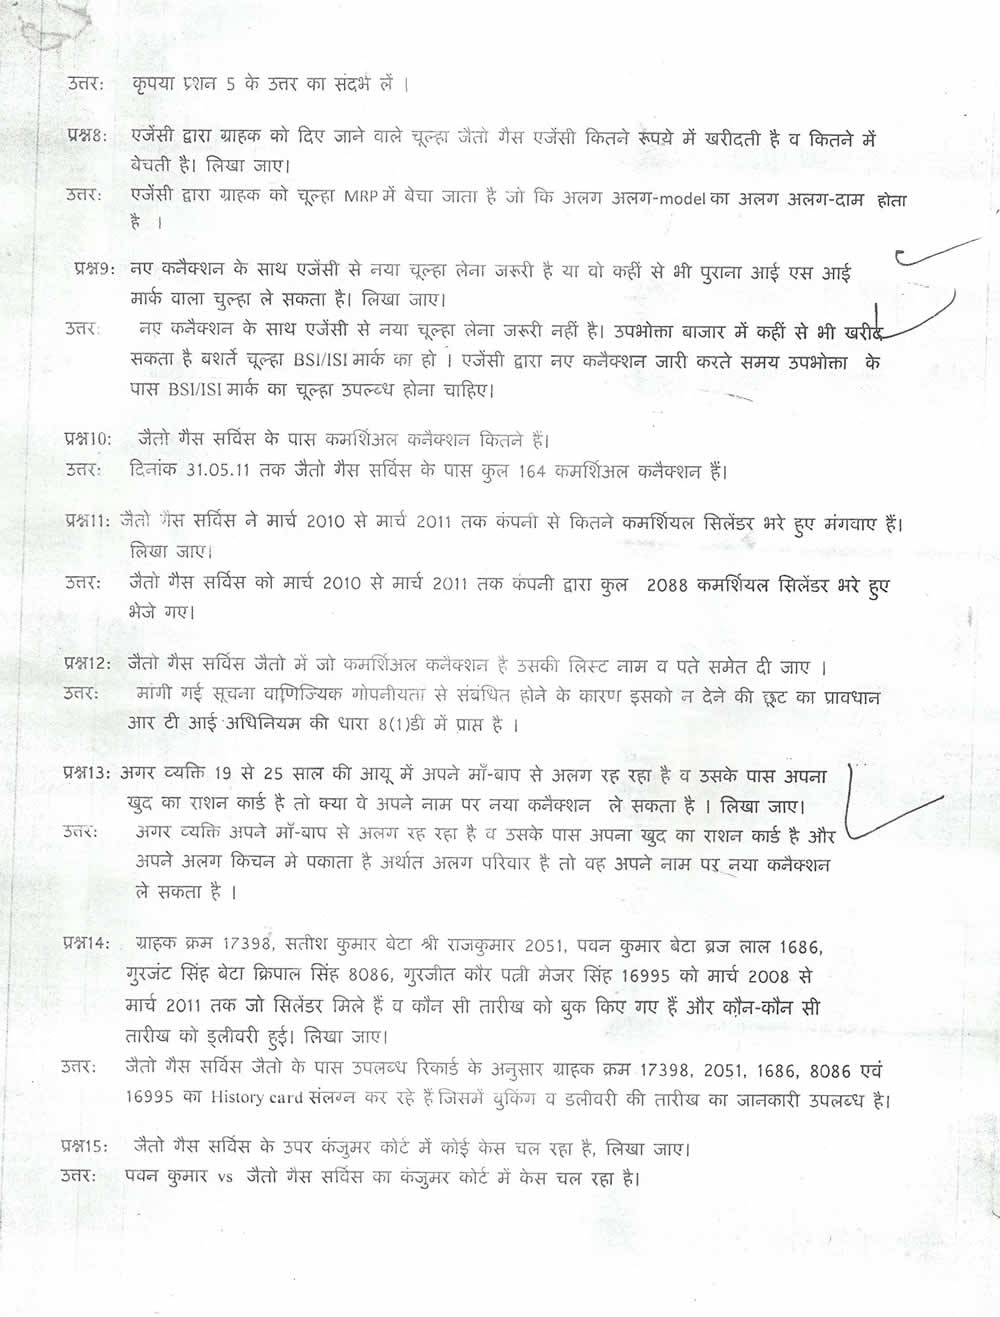 उत्तर: कृपया प्रशन 5 के उत्तर का संदर्भ लें ।
प्रश्न8: एजेंसी द्वारा ग्राहक को दिए जाने वाले चूल्हा जैतो गैस एजेंसी कितने रूपये में खरीदती है व कितने में
बेचती है। लिखा जाए।
उत्तर: एजेंसी द्वारा ग्राहक को चूल्हा MRP में बेचा जाता है जो कि अलग अलग-model का अलग अलग-दाम होता
है ।
प्रश्न9: नए कनैक्शन के साथ एजेंसी से नया चूल्हा लेना जरूरी है या वो कहीं से भी पुराना आई एस आई
मार्क वाला चुल्हा ले सकता है। लिखा जाए।
उत्तर: नए कनैक्शन के साथ एजेंसी से नया चूल्हा लेना जरूरी नहीं है। उपभोक्ता बाजार में कहीं से भी खरीद
सकता है बशर्ते चूल्हा BSI/ISI मार्क का हो । एजेंसी द्वारा नए कनैक्शन जारी करते समय उपभोक्ता के
पास BSI/ISI मार्क का चूल्हा उपल्ब्ध होना चाहिए।
प्रश्न10: जैतो गैस सर्विस के पास कमर्शिअल कनैक्शन कितने हैं।
उत्तर: दिनांक 31.05.11 तक जैतो गैस सर्विस के पास कुल 164 कमर्शिअल कनैक्शन हैं।
प्रश्न11: जैतो गैस सर्विस ने मार्च 2010 से मार्च 2011 तक कंपनी से कितने कमर्शियल सिलेंडर भरे हुए मंगवाए हैं।
लिखा जाए।
उत्तर: जैतो गैस सर्विस को मार्च 2010 से मार्च 2011 तक कंपनी द्वारा कुल 2088 कमर्शियल सिलेंडर भरे हुए
भेजे गए।
प्रश्न12: जैतो गैस सर्विस जैतो में जो कमर्शिअल कनैक्शन है उसकी लिस्ट नाम व पते समेत दी जाए ।
उत्तर: मांगी गई सूचना वाणिज्यिक गोपनीयता से संबंधित होने के कारण इसको न देने की छूट का प्रावधान
आर टी आई अधिनियम की धारा 8(1)डी में प्राप्त है ।
प्रश्न13: अगर व्यक्ति 19 से 25 साल की आयू में अपने माँ-बाप से अलग रह रहा है व उसके पास अपना
खुद का राशन कार्ड है तो क्या वे अपने नाम पर नया कनैक्शन ले सकता है । लिखा जाए।
उत्तर: अगर व्यक्ति अपने माँ-बाप से अलग रह रहा है व उसके पास अपना खुद का राशन कार्ड है और
अपने अलग किचन मे पकाता है अर्थात अलग परिवार है तो वह अपने नाम पर नया कनैक्शन
ले सकता है ।
प्रश्न14: ग्राहक क्रम 17398, सतीश कुमार बेटा श्री राजकुमार 2051, पवन कुमार बेटा ब्रज लाल 1686,
गुरजंट सिंह बेटा क्रिपाल सिंह 8086, गुरजीत कौर पत्नी मेजर सिंह 16995 को मार्च 2008 से
मार्च 2011 तक जो सिलेंडर मिले हैं व कौन सी तारीख को बुक किए गए हैं और कौन-कौन सी
तारीख को ड्लीवरी हुई। लिखा जाए।
उत्तर: जैतो गैस सर्विस जैतो के पास उपलब्ध रिकार्ड के अनुसार ग्राहक क्रम 17398, 2051, 1686, 8086 एवं
16995 का History card संलग्न कर रहे हैं जिसमें बुकिंग व डलीवरी की तारीख का जानकारी उपलब्ध है।
प्रश्न15: जैतो गैस सर्विस के उपर कंजुमर कोर्ट में कोई केस चल रहा है, लिखा जाए।
उत्तर: पवन कुमार vs जैतो गैस सर्विस का कंजुमर कोर्ट में केस चल रहा है।